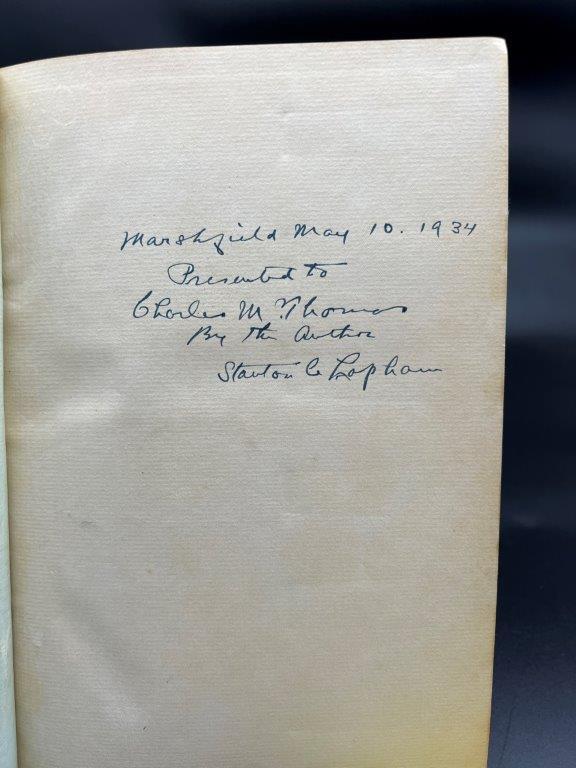 Marshfield May 10. 1934
Presented to
Charles M. Thomas
By the Author
Stanton C Lapham